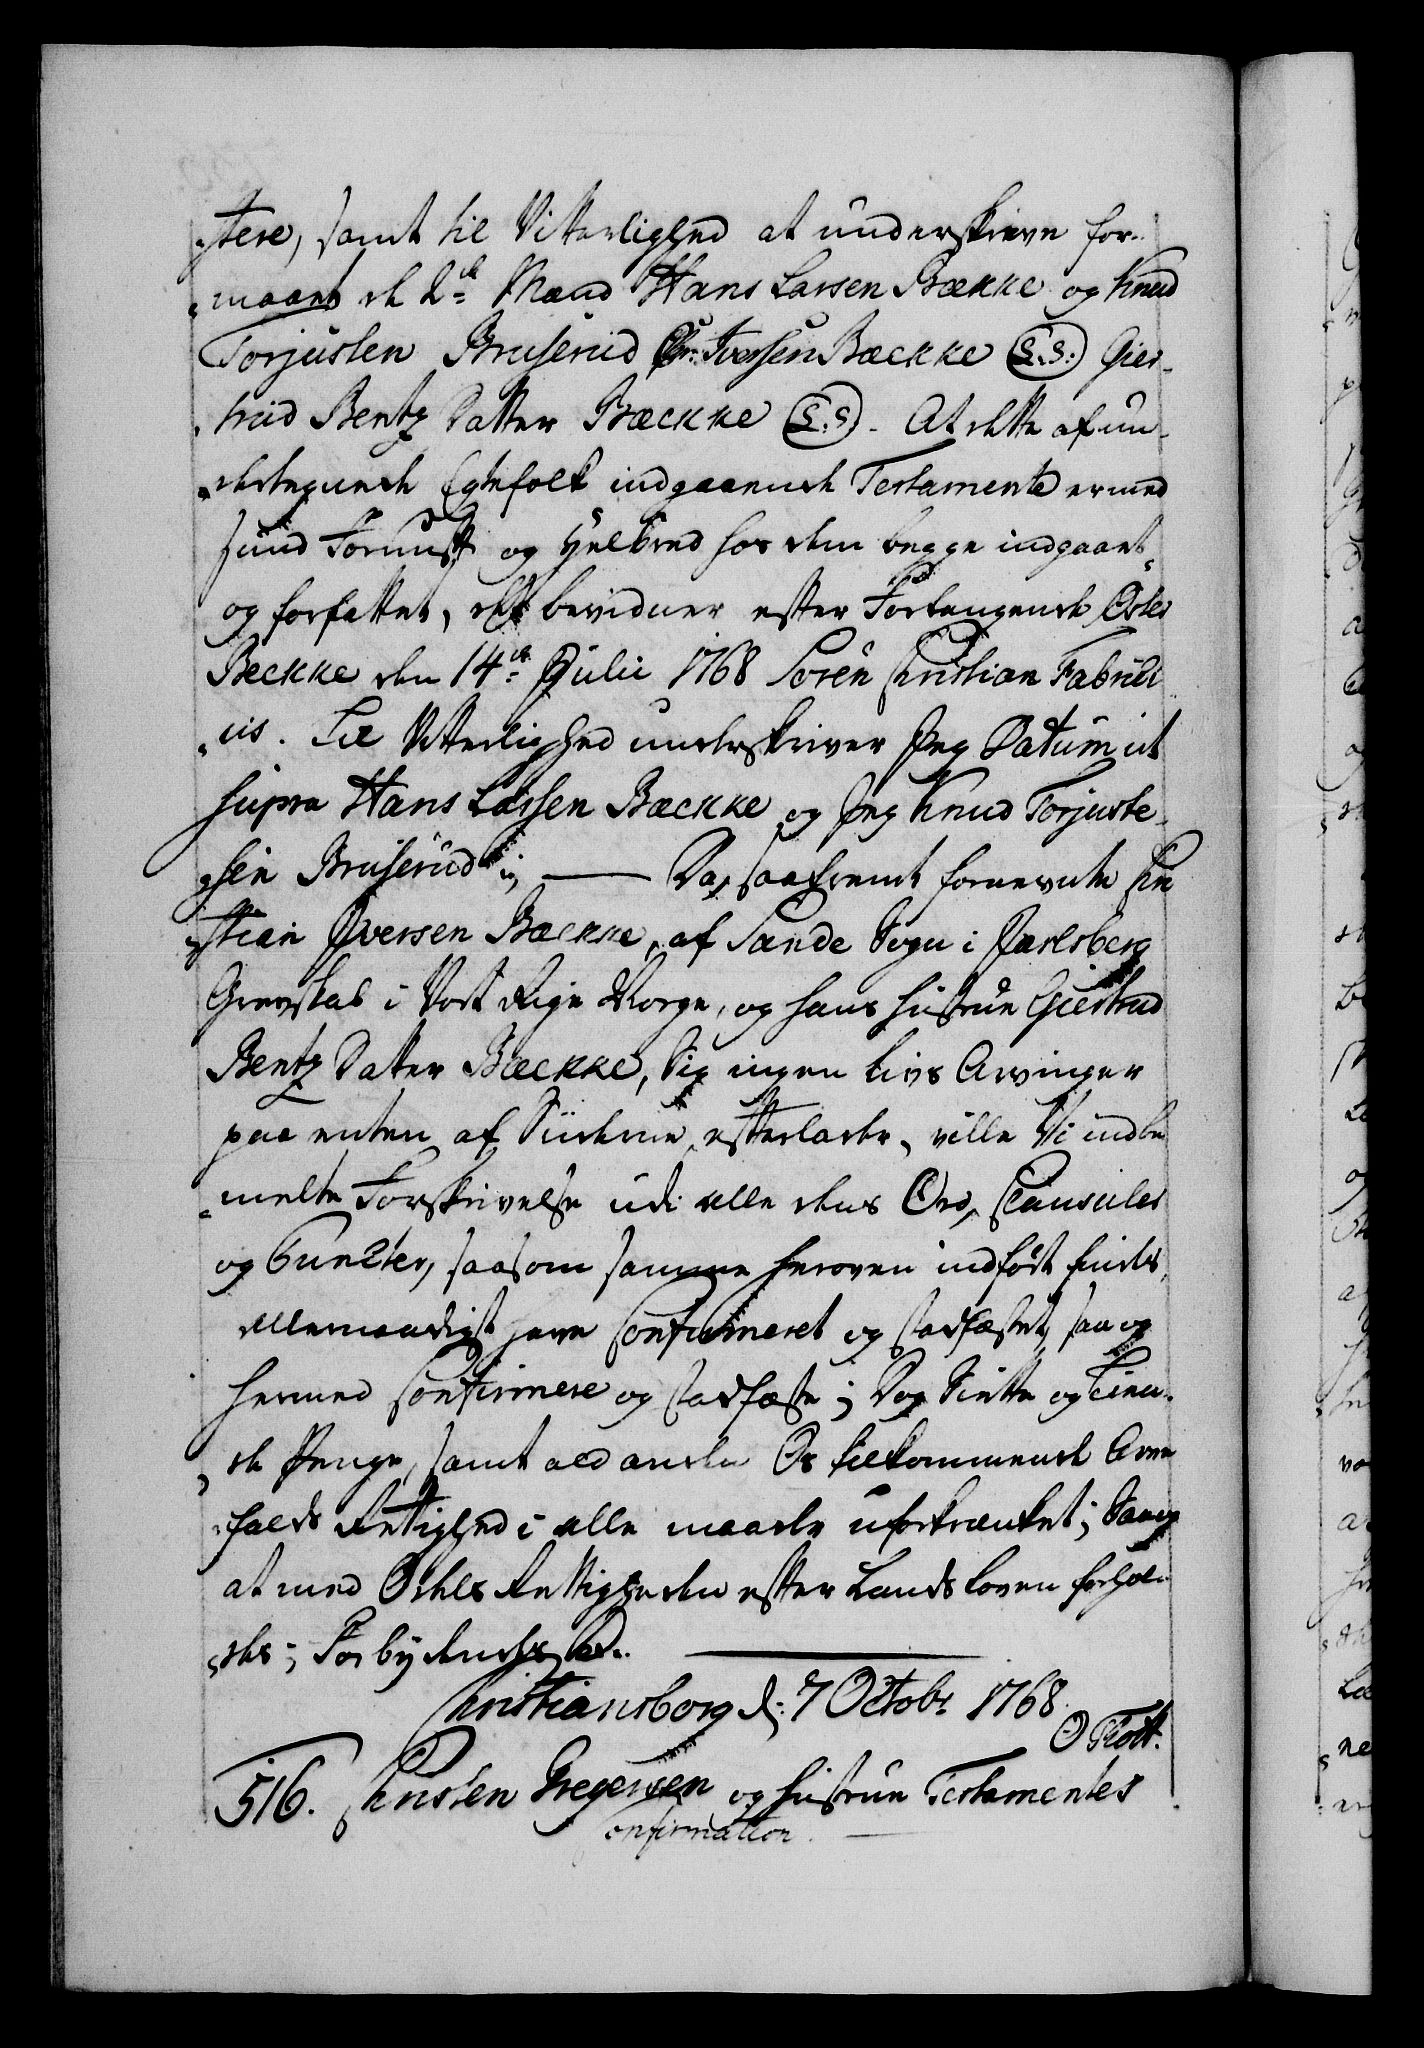 stere, samt til Vitterlighed at underskrive for-
maaet de 2de Mænd Hans Larsen Bække og Knud
Torjussen Bruserud Chr: Iversen Bæckke (L.S.) Gier-
trud Bentz Datter Bæckke (L.S.). At dette af un-
dertegnede Egtefolk indgaaende Testamente er med
sund Fornuft og Helbred hos dem begge indgaaet
og forfattet, det bevidner efter Forlangende
Beckke den 14de Julii 1768 Søren Christian Fabrici
us. Til Vitterlighed underskriver Jeg Datum ut
supra Hans Larsen Bæckke og Jeg Knud Torjuste-
sen Bruserud — Da, saafremt fornevnte Chri
stian Iversen Bæckke, af Sande Sogn i Jarlsberg
Grevskab i Vort Rige Norge, og hans Hustrue Giertrud
Bentz Datter Bæckke, Sig ingen Livs Arvinger
paa enten af Siiderne efterlader, ville Vi indbe
melte Forskrivelse udi alle dens Ord, Clausuler
og Puncter, saasom samme heroven indført findes,
allernaadigst have Confirmeret og stadfæstet, saa og
hermed Confirmere og stadfæste; Dog Siette og Tien-
de Penge, samt ald anden Os tilkommende Arve
falds Rettighed i alle maader uforkrænket; Saa og
at med Odels Rettigheden efter Lands Loven forhol-
des; Forbydendes &c.
Christiansborg d: 7 Octobr 1768
O Thott.
516. Christen Gregersen og Hustrue Testamentes
Confirmation.